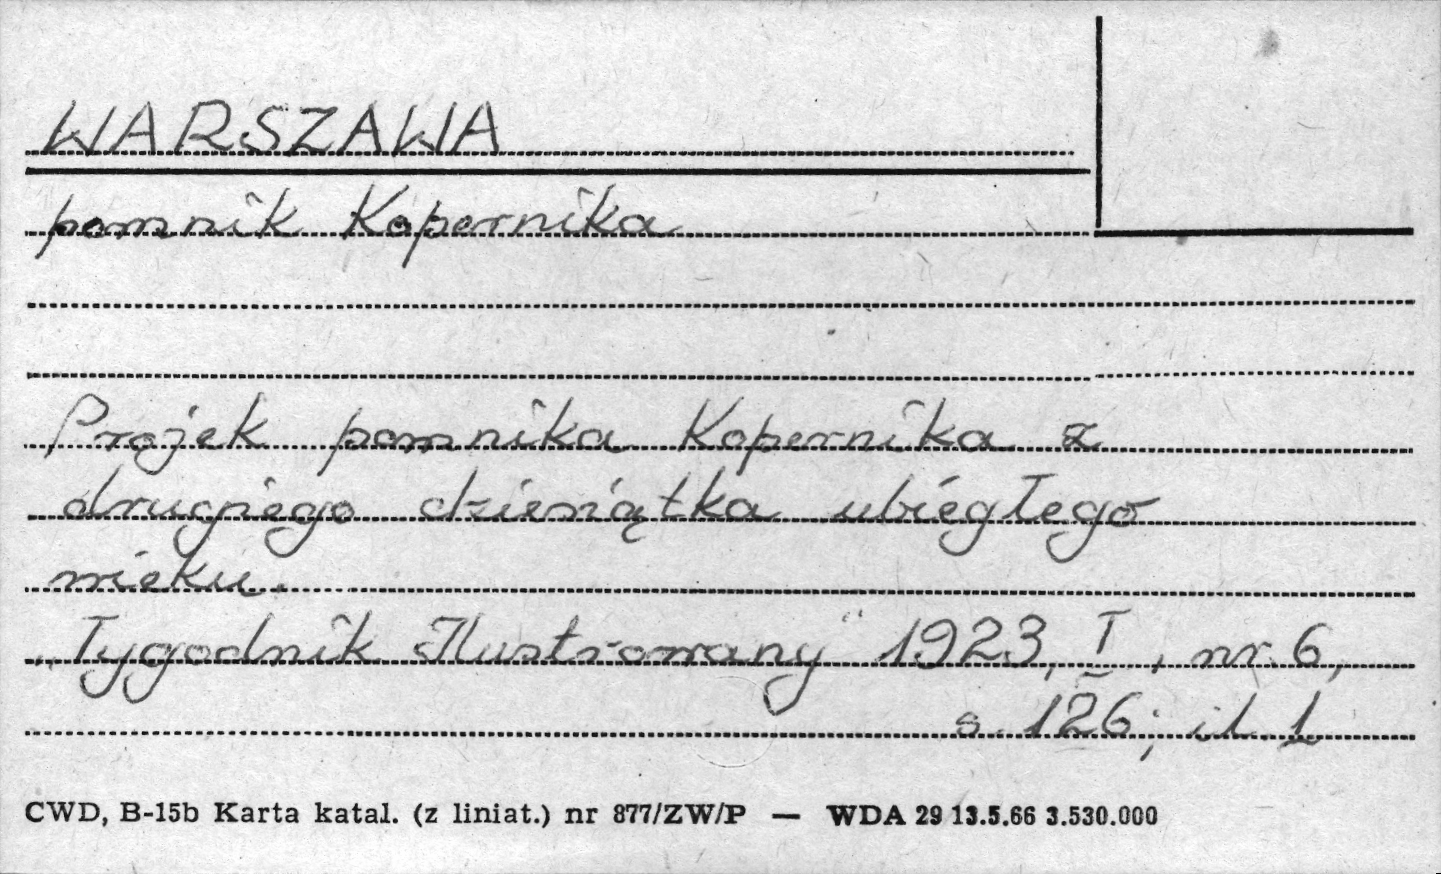 WARSZAWA
pomnik Kopernika
Projek pomnika Kopernika z
drugiego dziesiątka ubiegłego
wieku.
„Tygodnik Ilustrowany" 1923, I, nr. 6,
s. 126; il. 1
CWD, B-15b Karta katal. (z liniat.) nr 877/ZW/P — WDA 29 13.5.66 3.530.000